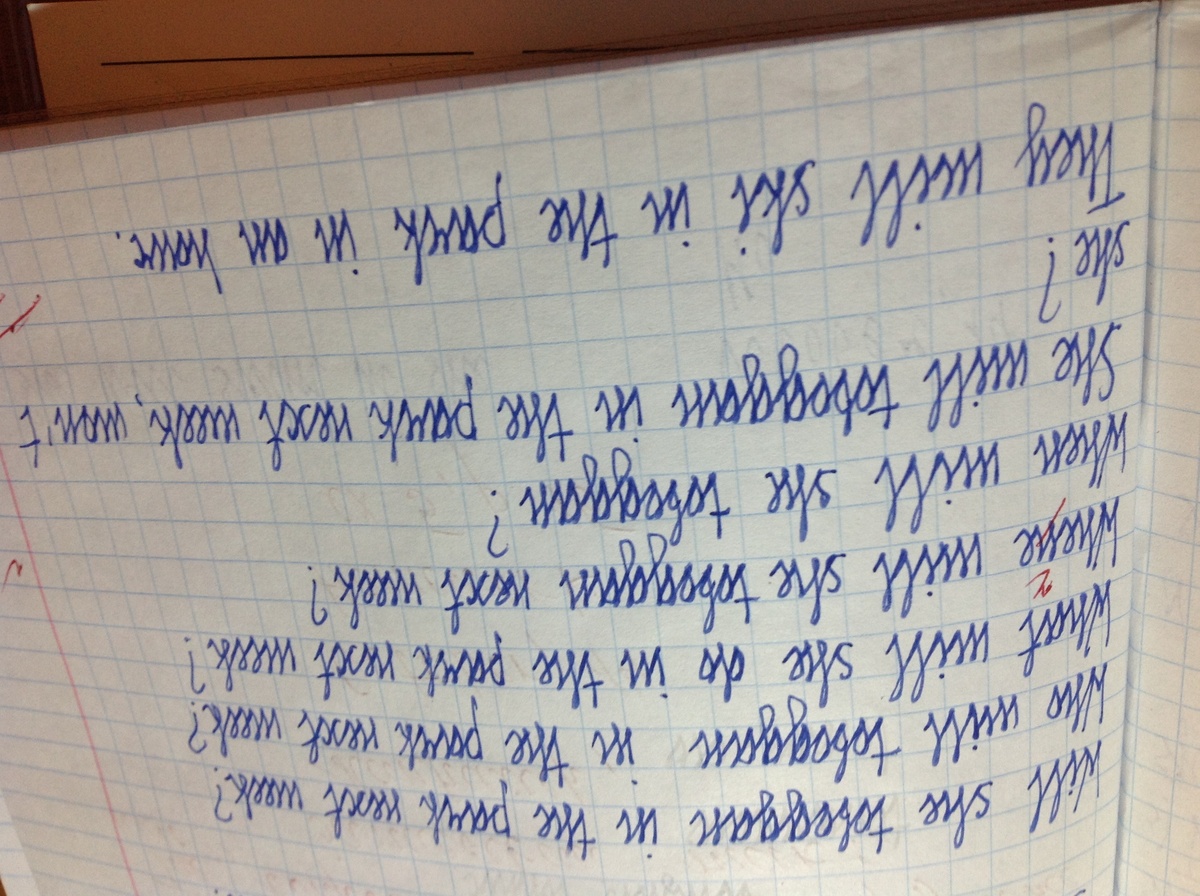 Will she toboggan in the park next week?
Who will toboggan in the park next week?
What will she do in the park next week?
Where will she toboggan next week?
When will she toboggan?
She will toboggan in the park next week, won't
she?
They will ski in the park in an hour.